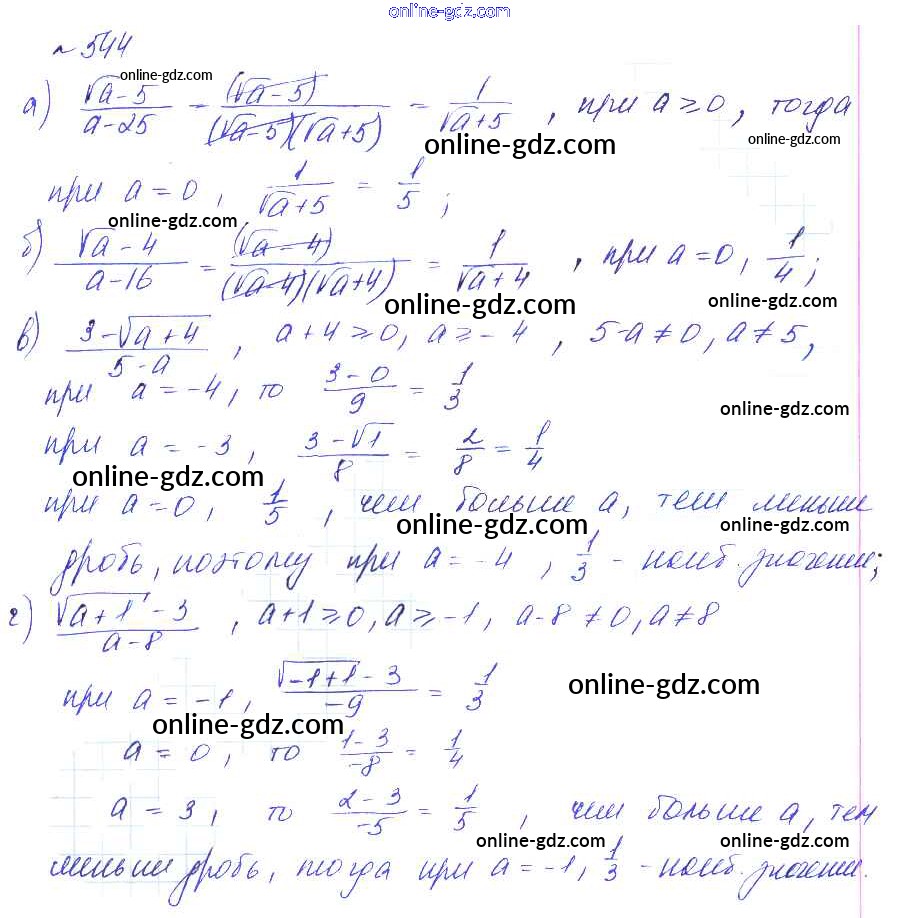 online-gdz.com
№ 544
online-gdz.com
а) (√a-5)/(a-25) = (√a-5)/((√a-5)(√a+5)) = 1/(√a+5) , при a ≥ 0, тогда
online-gdz.com
online-gdz.com
при a = 0, 1/(√a+5) = 1/5 ;
online-gdz.com
б) (√a-4)/(a-16) = (√a-4)/((√a-4)(√a+4)) = 1/(√a+4) , при a=0, 1/4 ;
online-gdz.com
online-gdz.com
в) (3-√(a+4))/(5-a) , a+4 ≥ 0, a ≥ -4 , 5-a ≠ 0, a ≠ 5,
при a = -4, то (3-0)/9 = 1/3
online-gdz.com
при a = -3, (3-√1)/8 = 2/8 = 1/4
online-gdz.com
при a = 0, 1/5 , чем больше a, тем меньше
online-gdz.com
online-gdz.com
дробь, поэтому при a = -4 , 1/3 - наиб. значение;
г) (√(a+1) - 3)/(a-8) , a+1 ≥ 0, a ≥ -1, a-8 ≠ 0, a ≠ 8
при a = -1, (√(-1+1) - 3)/(-9) = 1/3
online-gdz.com
online-gdz.com
a = 0, то (1-3)/(-8) = 1/4
a = 3, то (2-3)/(-5) = 1/5 , чем больше a, тем
online-gdz.com
online-gdz.com
меньше дробь, тогда при a = -1, 1/3 - наиб. значение.